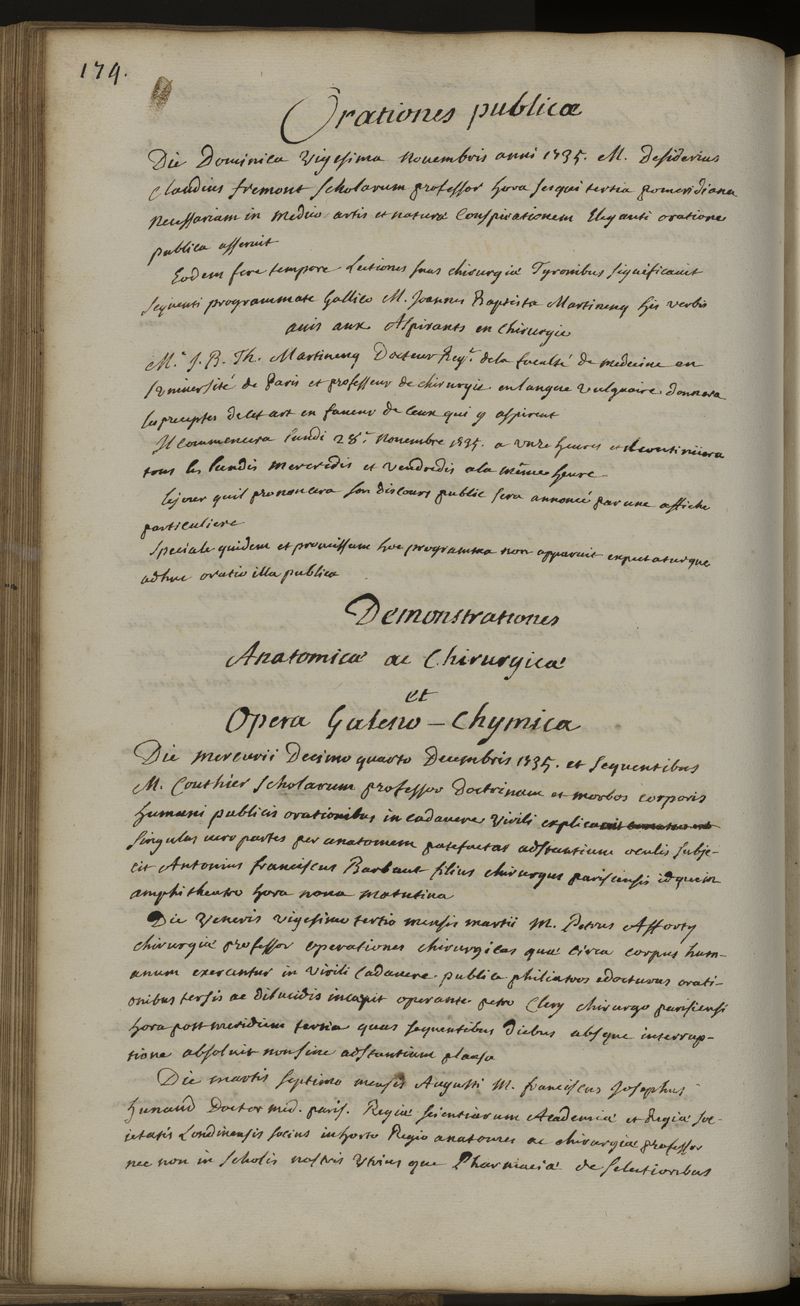 174.
Orationes publicæ
Die Dominica vigesima novembris anni 1735. M. Desiderius
Claudius fremont scholarum professor hora sesqui tertia pomeridiana
necessariam in medico artis et naturæ conspirationem Eleganti oratione
publica asseruit
Eodem fere tempore Lectiones suas chirurgiæ Tyronibus significavit
sequenti programmate Gallico M. Joannes Baptista Martinenq his verbis
avis aux Aspirants en Chirurgie
M.e J. B. Th. Martinenq Docteur Reg.t de la faculté de medecine en
l'université de Paris et professeur de chirurgie en langue vulguaire donnera
les preceptes de cet art en faveur de ceux qui y aspirent
Il commencera lundi 28.e novembre 1735. a onze heures et il continüera
tous les lundis mercredis et vendredis a la même heure
le jour quil prononcera son discours public sera annoncé par une affiche
particuliere
speciale quidem et promissum hoc programma non apparuit expectaturque
adhuc oratio illa publica
Demonstrationes
Anatomicæ ac Chirurgicæ
et
Opera Galeno-Chymica
Die mercurii Decimo quarto Decembris 1735. et sequentibus
M. Couthier scholarum professor doctrinam et morbos corporis
humani publicis orationibus in cadavere virili
singulas vero partes per anatomem patefactas adstantium oculis subje-
cit Antonius franciscus Barbaut filius chirurgus parisiensis idque in
amphitheatro hora nona matutina
Die veneris vigesimo tertio mensis martii M. Petrus Afforty
chirurgiæ professor operationes chirurgicas quæ circa corpus hum-
anum exercentur in virili cadavere publica philiatros edocturus orati-
onibus tersis ac dilucidis incœpit operante petro Clery chirurgo parisiensi
hora post meridiem tertia quas sequentibus diebus absque interrup-
tione absolvit non sine adstantium plausu
Die martis septimo mensis Augusti M. franciscus Josephus
Hunaud Doctor med. paris. Regiæ scientiarum Academiæ et Regiæ soc-
ietatis Londinensis socius in horto Regio anatomes ac chirurgiæ professor
nec non in scholis nostris utriusque Pharmaciæ de selectioribus